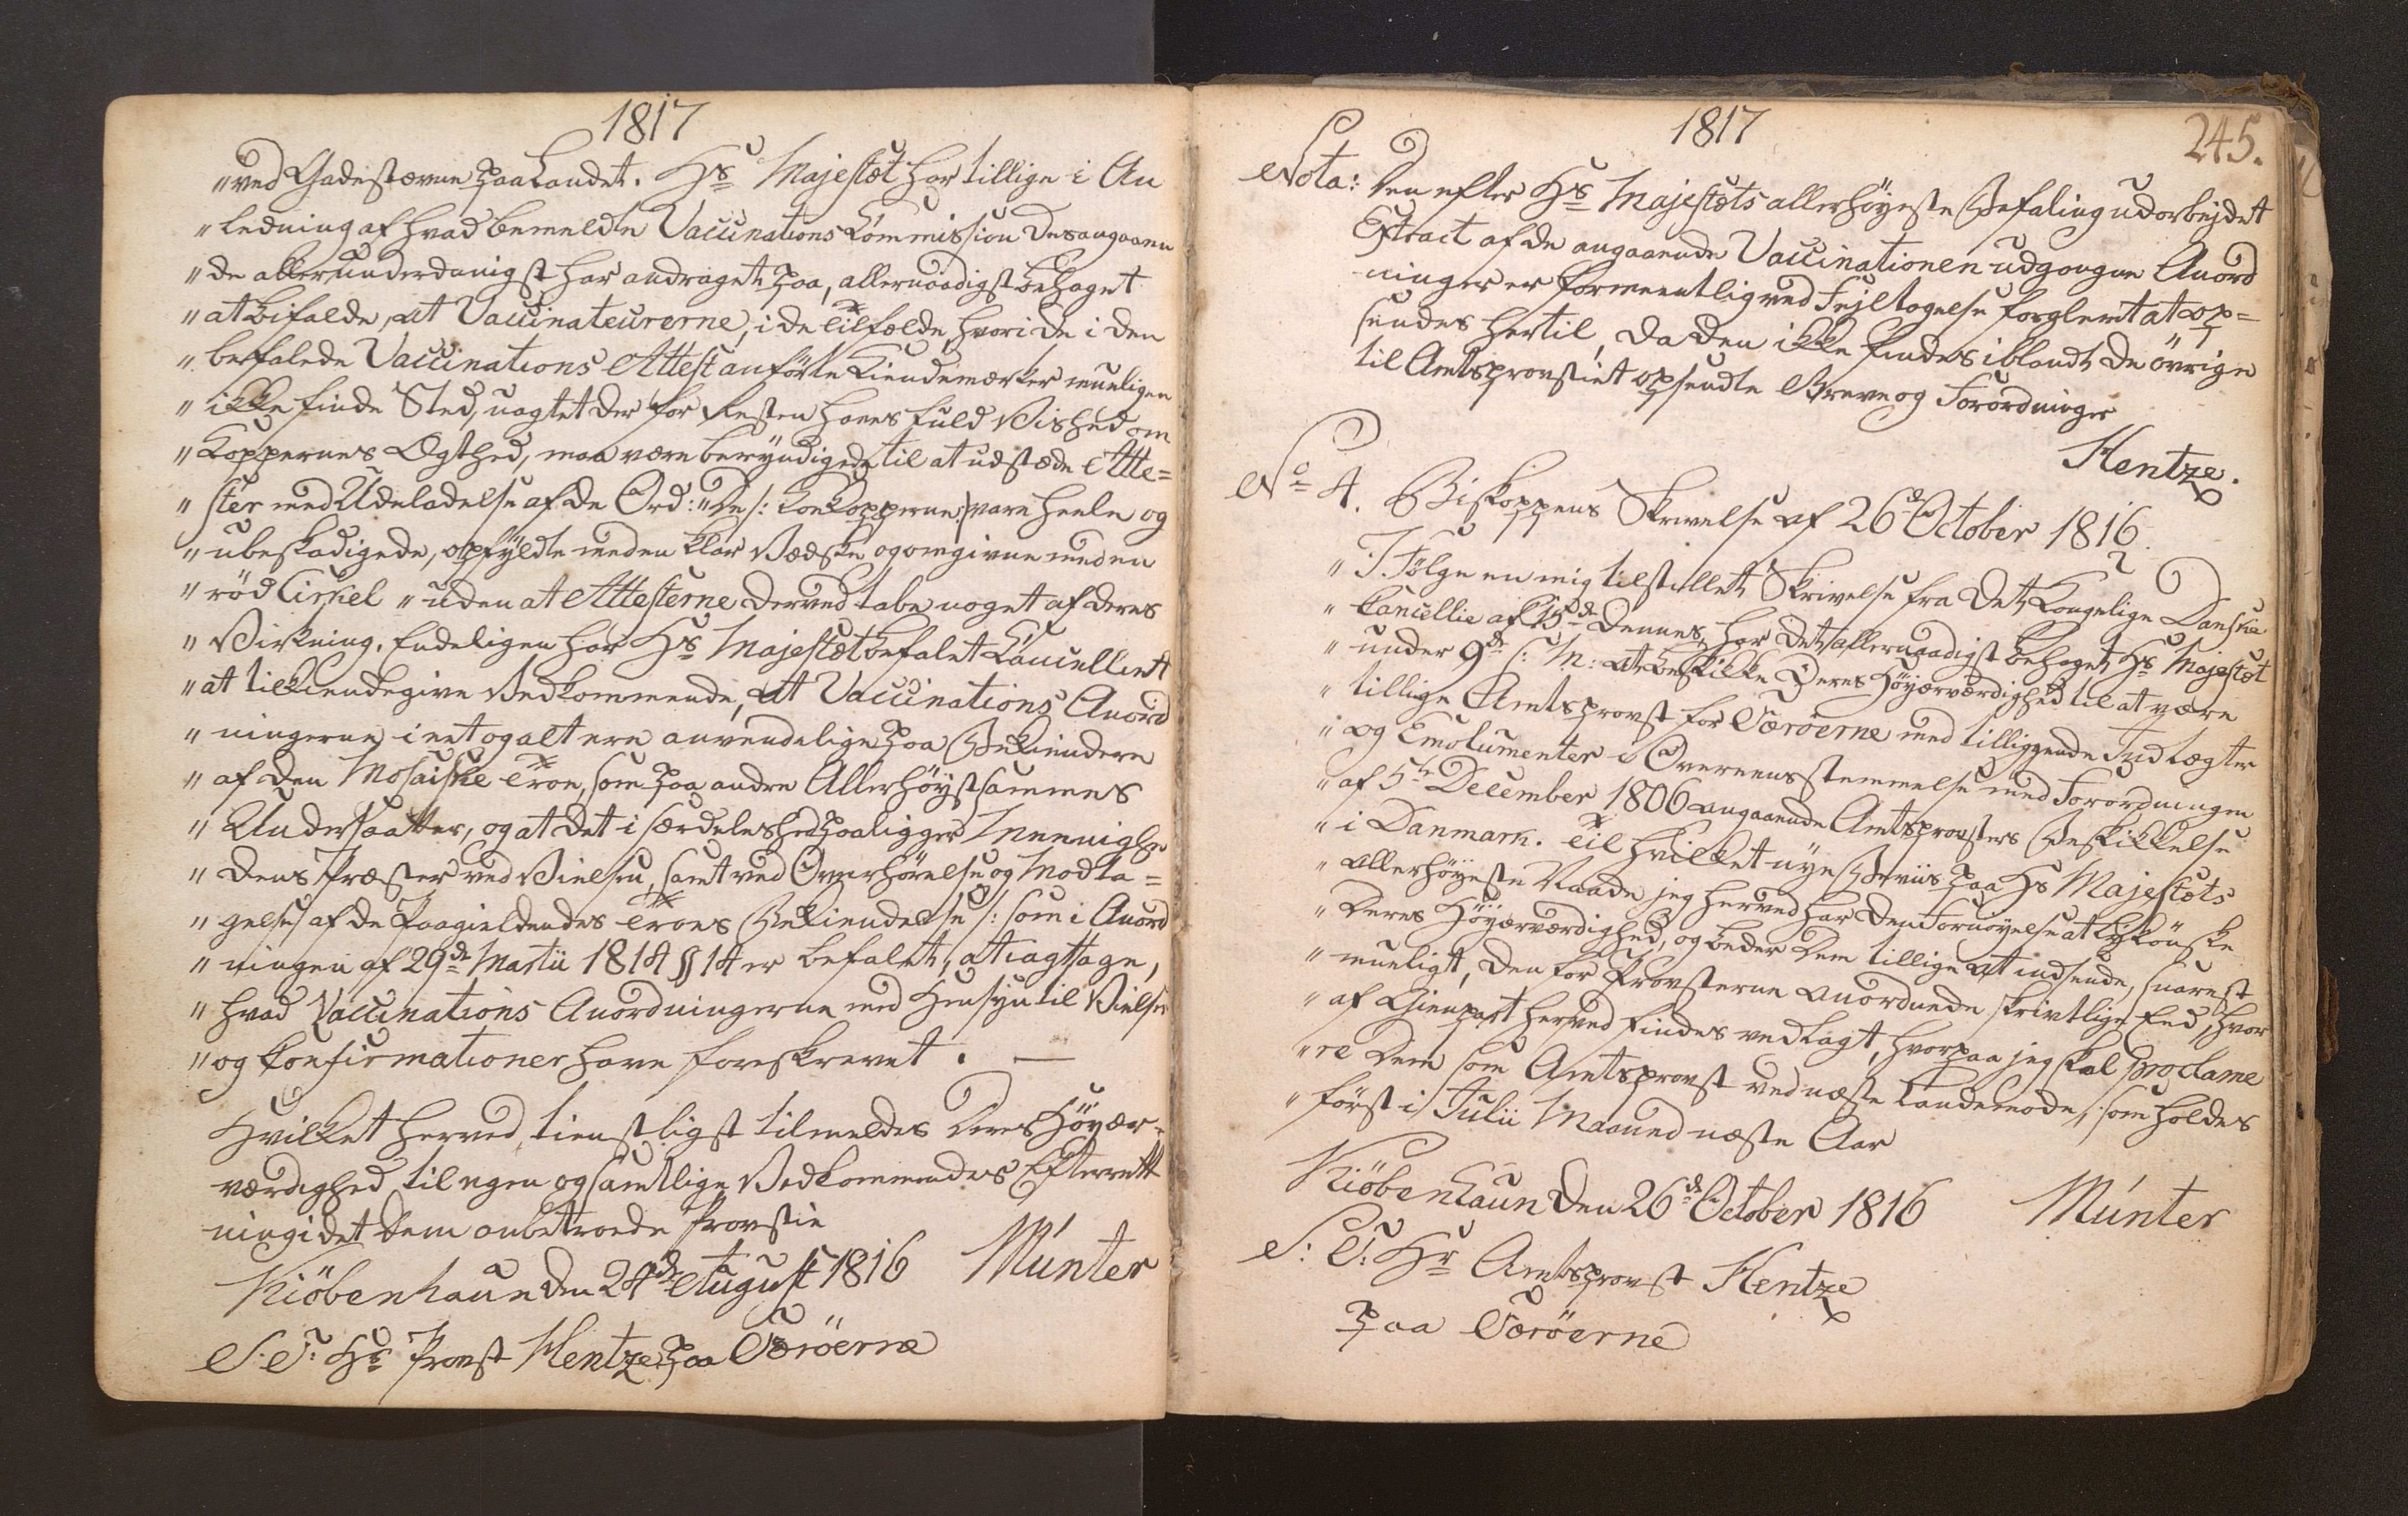 1817
"ved Gadestævne paa Landet. Hs Majestæt har tillige i An
"ledning af hvad bemeldte Vaccinations Commission desangaaen
"de allerunderdanigst har andraget paa, allernaadigst behaget
"at bifalde, at Vaccinateurerne, i de Tilfælde, hvori de i den
"befalede Vaccinations Attest anförte Kiendemærker mueligen
"ikke finde Sted, uagtet der for Resten haves fuld Vished om
"Koppernes Ægthed, maa være beryndigede til at udstæde Atte=
"ster med Udeladelse af de Ord: "De /: KoeKopperne :/ vare heele og
"ubeskadigede, opfyldte med en klar Vædske og omgivne med en
"röd Cirkel " uden at Attesterne derved tabe noget af deres
"Virkning. Endeligen har Hs Majestæt befalet Cancelliet
"at tilkiendegive Vedkommende, at Vaccinations Anord
"ningerne i eet og alt ere anvendelige paa Bekiendere
"af den Mosaiske Troe, som paa andre Allerhöystsammes
"Undersaatter, og at det i særdeleshed paaligger Menighe
"dens Præster ved Vielser, samt ved Overhörelse og Modta=
"gelse af de Paagieldendes Troes Bekiendelse /: som i Anord
"ningen af 29de Martii 1814 § 14 er befalet, at iagttage,
"hvad Vaccinations Anordningerne med Hensyn til Vielser
"og Confirmationer have foreskrevet. —
Hvilket herved tienstligst tilmeldes Deres Höyær-
værdighed til egen og samtlige Vedkommendes Efterrett
ning i det Dem anbetroede Provstie
Kiöbenhaun den 24de August 1816 Münter
S. T. Hr Provst Hentze paa Færöerne
1817
245.
Nota: Den efter Hs Majestæts allerhöyeste Befaling udarbejdet
Extract af de angaaende Vaccinationen udgangne Anord
ninger er formeentlig ved Fejltagelse forglemt at op=
sendes hertil, da den ikke findes iblandt de övrige
til Amtsprovstiet opsendte Breve og Forordninger
Hentze.
No 4. Biskoppens Skrivelse af 26de October 1816.
"I Fölge en mig tilstillet Skrivelse fra Det Kongelige Danske
"Cancellie af 15de dennes, har det allernaadigst behaget Hs Majestæt
"under 9de s: M: at beskikke Deres Höyærværdighed til at være
"tillige Amtsprovst for Færöerne med tilliggende Indtægter
"og Emolumenter i Overeensstemmelse med Forordningen
"af 5te December 1806 angaaende Amtsprovsters Beskikkelse
"i Danmark. Til hvilket nye Beviis paa Hs Majestæts
"allerhöyeste Naade jeg herved har den Fornöyelse at lykönske
"Deres Höyærværdighed, og beder Dem tillige at indsende, snarest
"mueligt, den for Provsterne anordnede skrivtlige Eed, hvor
"af Gienpart herved findes vedlagt, hvorpaa jeg skal proclame
"re Dem som Amtsprovst ved næste Landemode, som holdes
"först i Julii Maaned næste Aar
Kiöbenhaun den 26de October 1816 Münter
S: T: Hr Amtsprovst Hentze
paa Færöerne